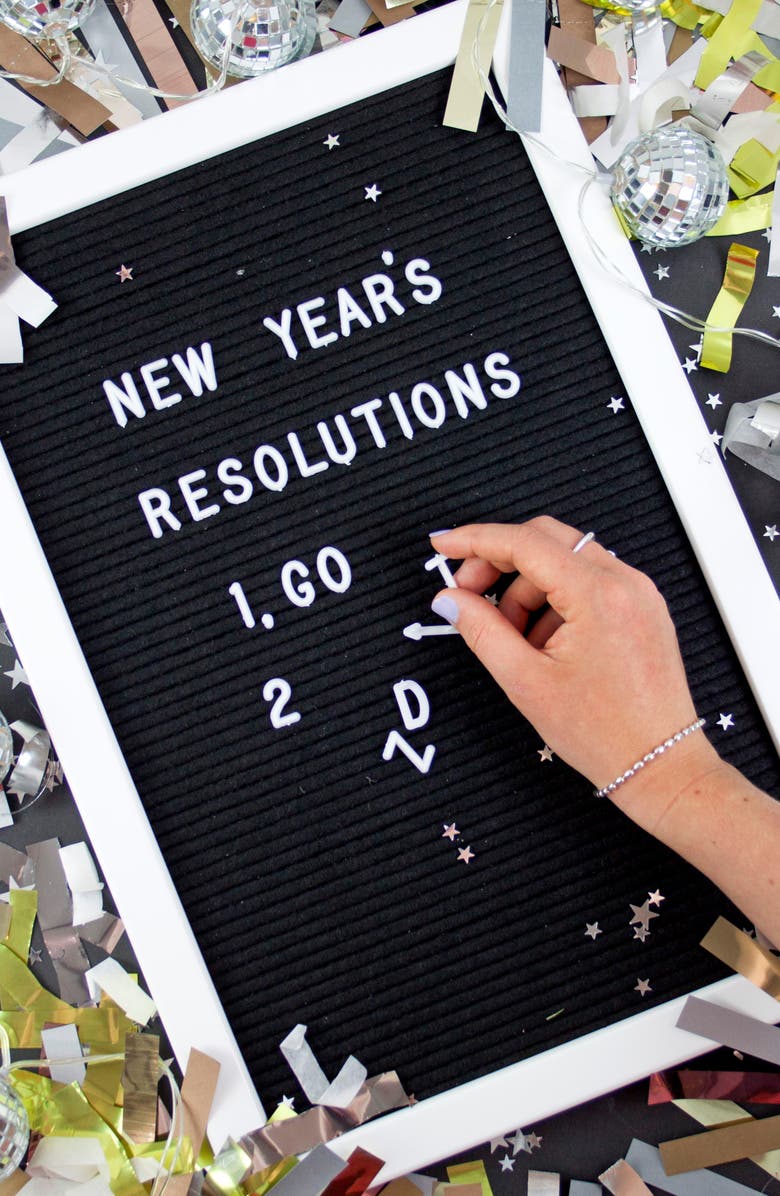 NEW YEAR'S
RESOLUTIONS
1. GO T
2 D
N